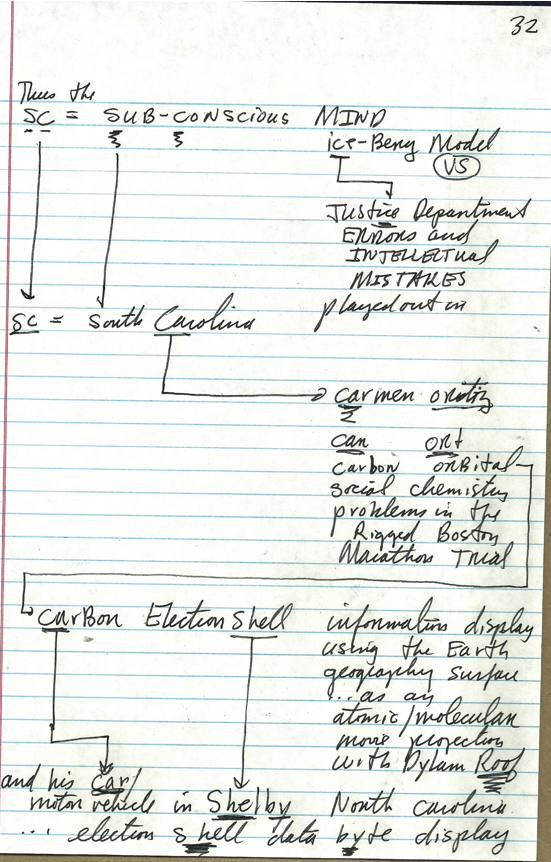 32
Thus the
SC = SUB-CONSCIOUS MIND
ice-Berg Model
VS
Justice Department
ERRORS and
INTELLECTUAL
MISTAKES
played out in
SC = South Carolina
carmen ortiz
can ort
carbon orbital
social chemistry
problems in the
Rigged Boston
Marathon Trial
Carbon Election Shell information display
using the Earth
geography surface
...as an
atomic/molecular
movie projection
with Dylan Roof
and his car/
motor vehicle in Shelby North Carolina
... election shell data byte display